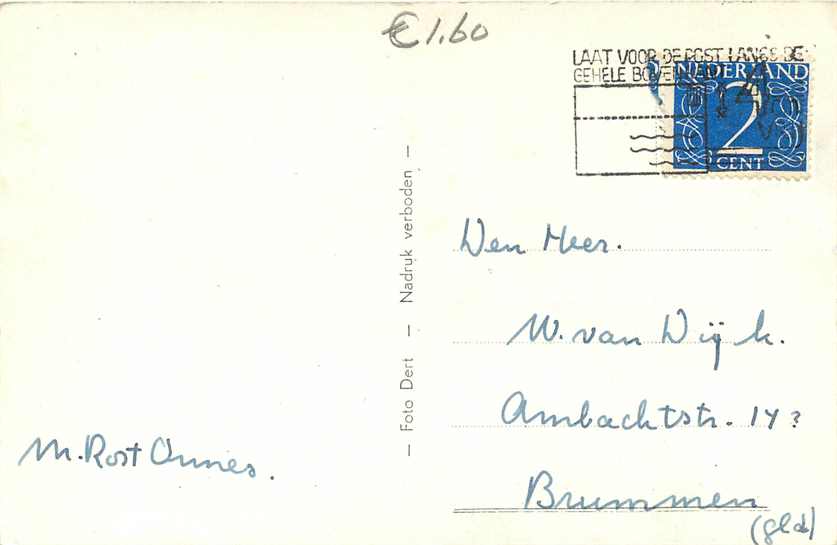 € 1.60
LAAT VOOR DE POST LANGS DE
GEHELE BOVEN
NEDERLAND
2
CENT
— Foto Dert — Nadruk verboden —
Den Heer.
W. van Dijk.
Ambachtstr. 14?
Brummen
(gld)
M. Rost Onnes.